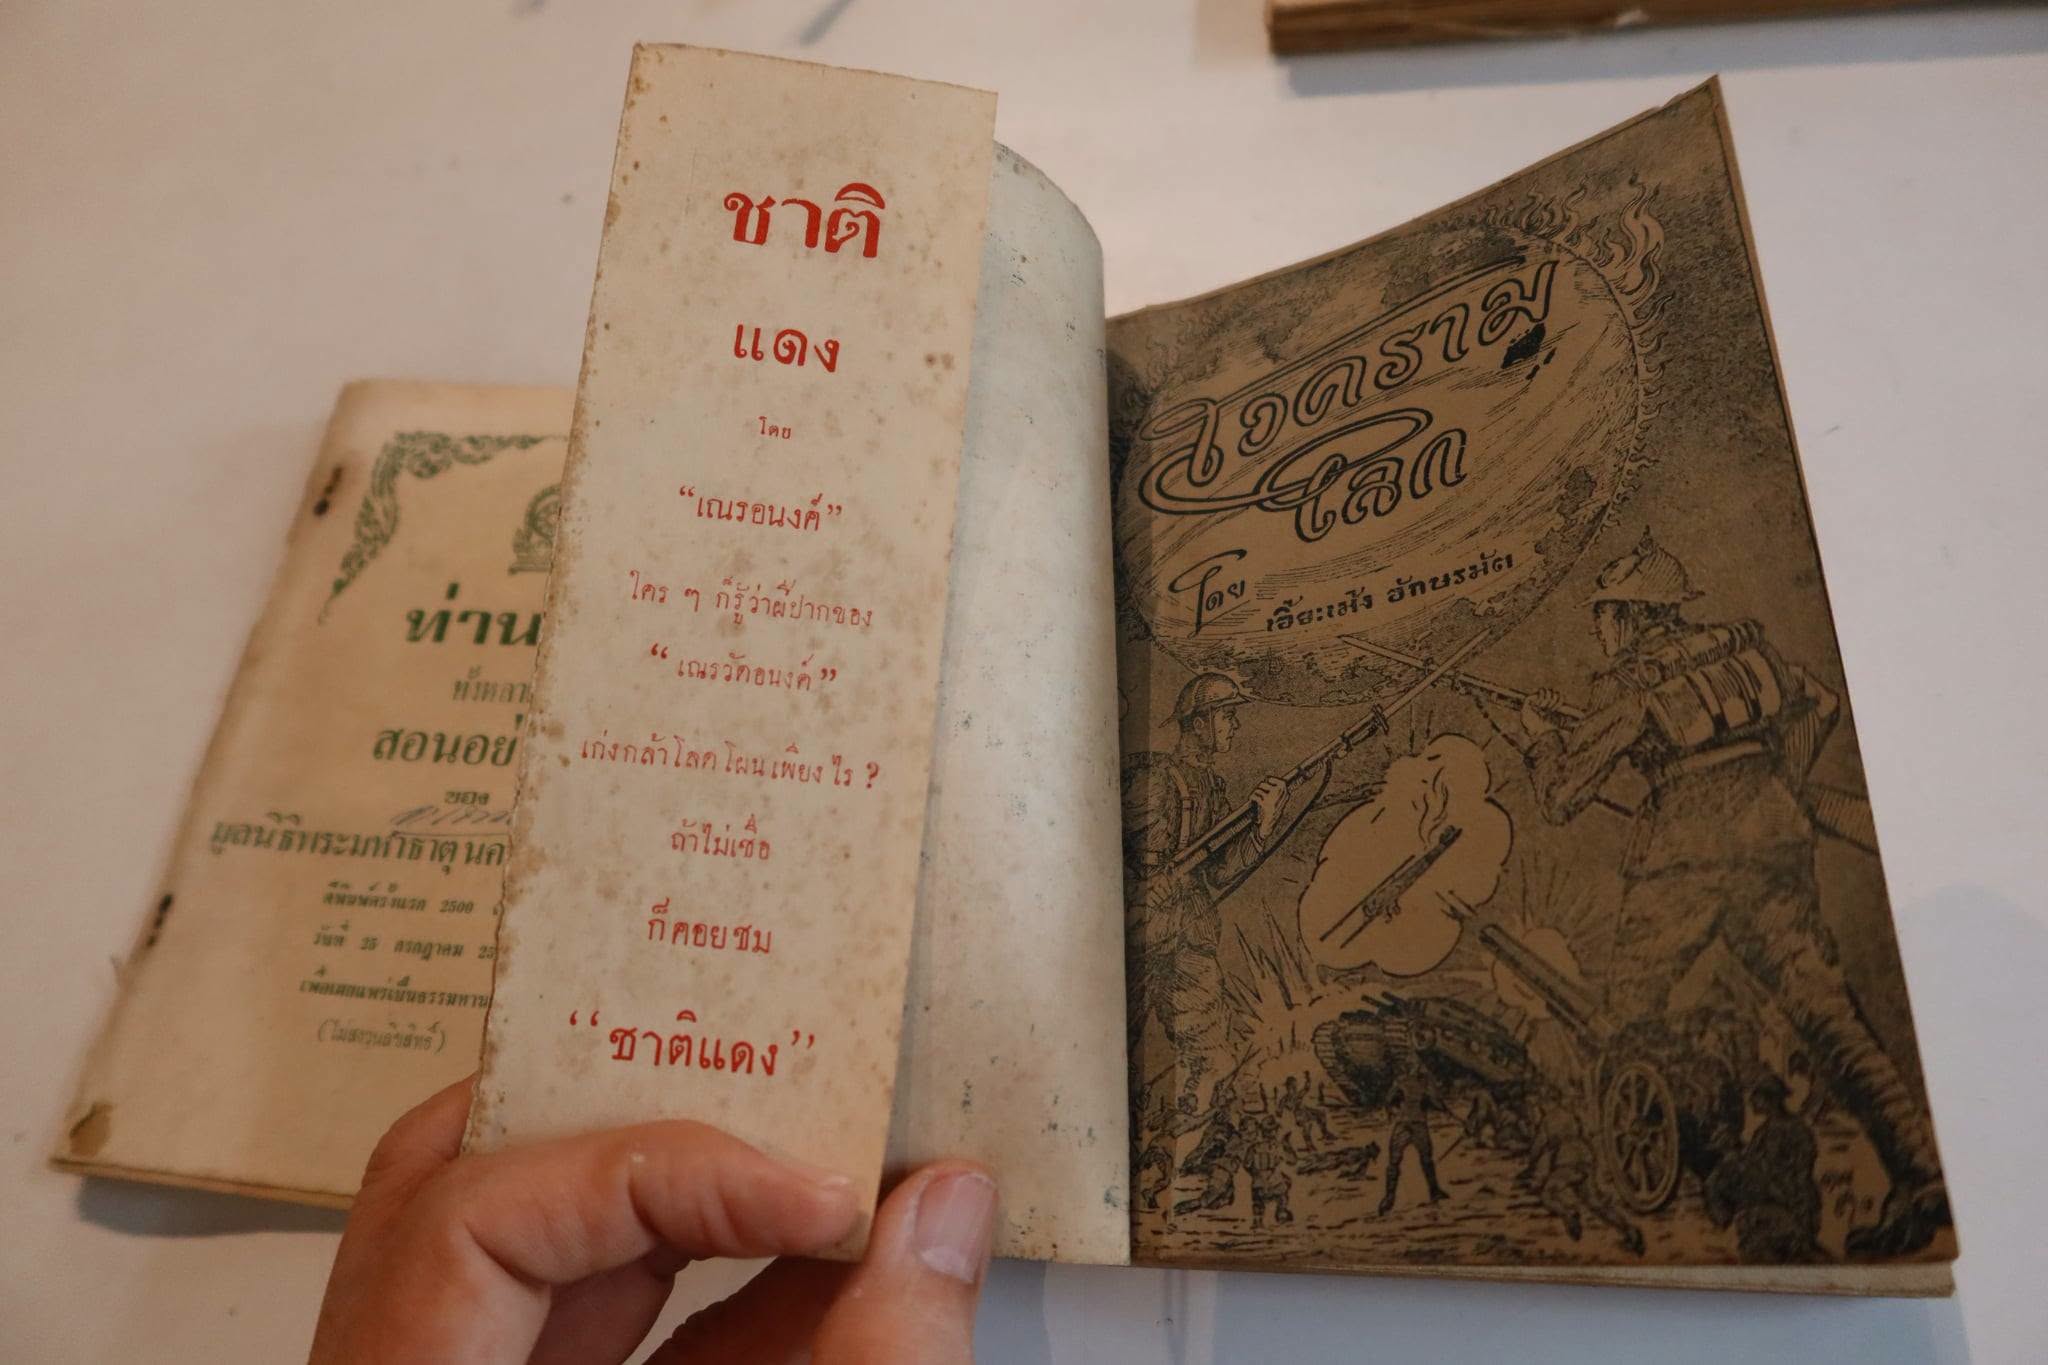 ชาติ
แดง
โดย
“เณรอนงค์”
ใคร ๆ ก็รู้ว่าฝีปากของ
“เณรวัดอนงค์”
เก่งกล้าโลดโผนเพียงไร ?
ถ้าไม่เชื่อ
ก็คอยชม
“ชาติแดง”
โลก
โดย
อักษรมัต
ท่าน
สอนอย่
ของ
มูลนิธิพระมหาธาตุนค
ตีพิมพ์ครั้งแรก 2500
วันที่ 25 กรกฎาคม 25
เพื่อเผยแพร่เป็นธรรมทาน
(ไม่สงวนลิขสิทธิ์)